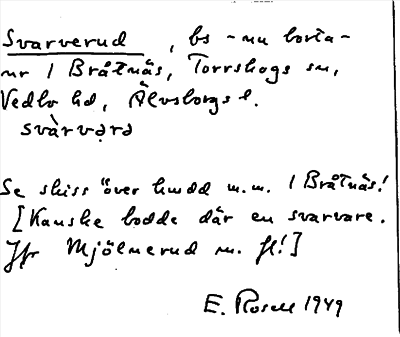 Svarverud, bs - nu borta -
nr 1 Bråtnäs, Torrskogs sn,
Vedbo hd, Älvsborgs l.
svàrvərə
Se skiss över hmdd m.m. 1 Bråtnäs!
[Kanske bodde där en svarvare.
Jfr Mjölnerud m. fl!]
E. Rosell 1949